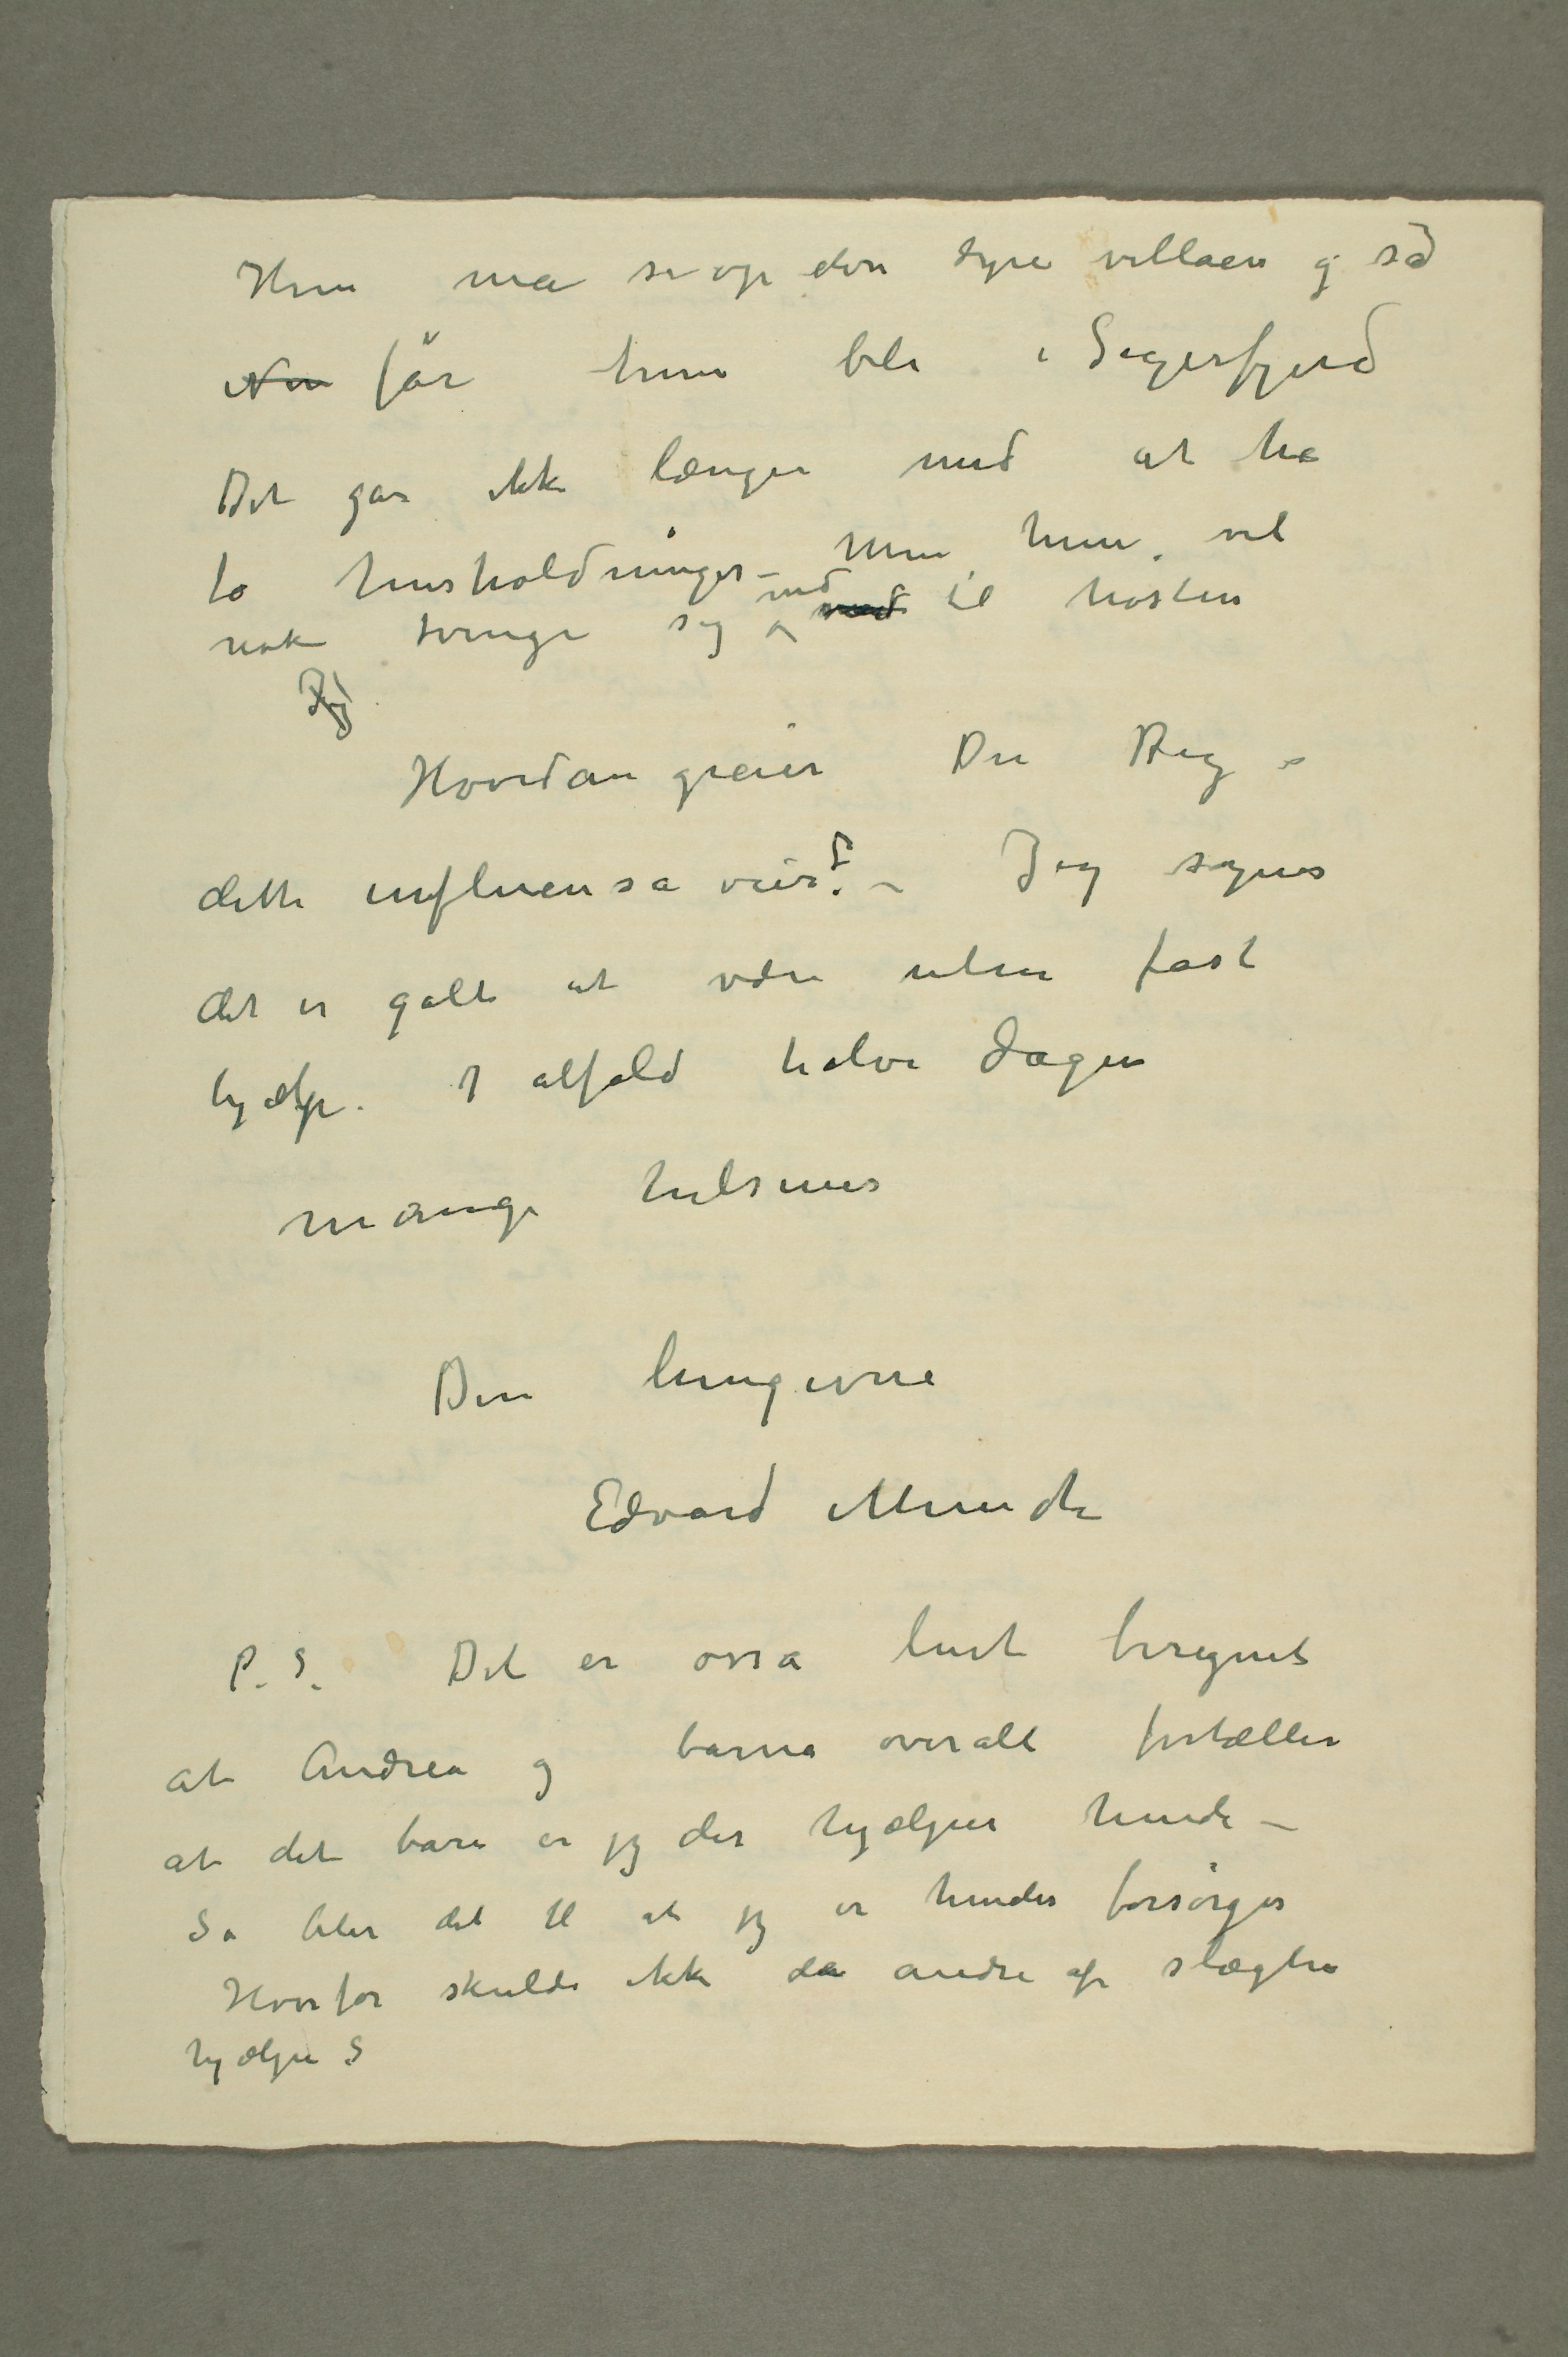 Hun må si op den dyre villaen og så
Nu får hun bli i Sigerfjord
Det går ikke længer med at ha
to husholdninger – Men hun vil
nok tvinge sig ned til høsten
Jeg
Hvordan greier Du Dig i
dette influensa veir? – Jeg synes
det er galt at være uten fast
hjælp. I alfald halve dagen
mange hilsener
Din hengivne
Edvard Munch
P.S. Det er osså lurt beregnet
at Andrea og barna overalt fortæller
at det bare er jeg der hjælper hende –
Så blir det til at jeg er hendes forsørger
Hvorfor skulde ikke da andre af slægten
hjælpe?